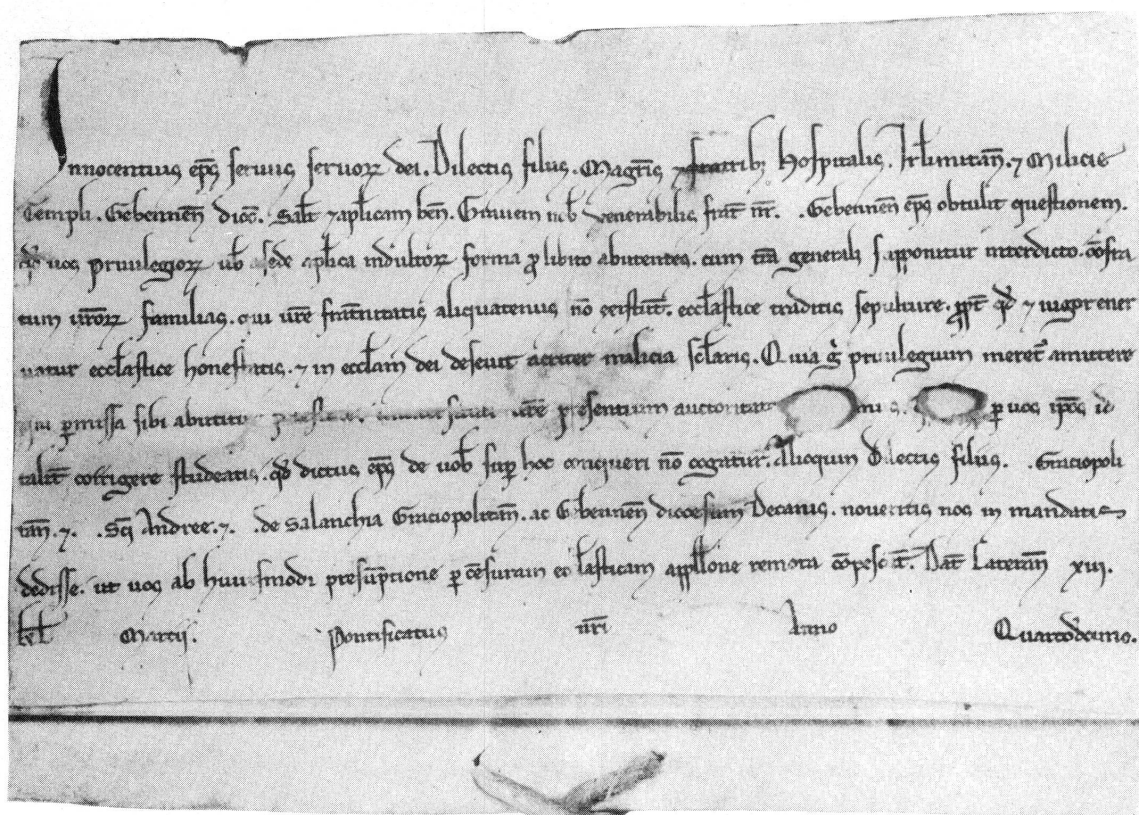 Innocentius ep̅s seruus seruoꝝ dei. Dilectis filiis. Magr̅is ⁊ fratribꝫ Hospitalis. Ierl̅imitan̅. ⁊ Milicie
Templi. Geben̅nen̅ dioc̅. Salt̅ ⁊ apl̅icam ben̅. Grauem nob̅ venerabilis frat̅ nr̅. . Geben̅nen̅ ep̅s obtulit questionem.
qđ uos priuilegioꝝ uob̅ a sede apl̅ica indultoꝝ forma ꝓ libito abutentes. cum tr̅a generali supponitur interdicto.
tum ur̅oꝝ familias. qui ur̅e frat̅nitatis aliquatenus no̅ existu̅t. eccl̅astice traditis sepulture. ⁊ uigor ener
uatur eccl̅astice honestatis. ⁊ in eccl̅am dei deseuit acriter malicia sc̅laris. Quia g̊ priuilegium meret᷑ amittere
qui ꝑmissa sibi abutitur potestate ur̅e presentium auctoritate ꝑ uos ip̅os id
talit̅ corrigere studeatis. qđ dictus ep̅s de uob̅ suꝑ hoc conqueri no̅ cogatur. Alioquin Dilectis filiis. . Graciopoli
tan̅. ⁊. . Sc̅i Andree. ⁊. . de Salanchia Graciopolitan̅. ac Geben̅nen̅ diocesum Decanis. noueritis nos in mandatis
dedisse. ut uos ab huiusmodi presu̅ptione ꝑ ce̅suram eccl̅asticam appell̅one remota co̅pesca̅t. Dat̅ Lateran̅ xiij.
kl̅ Martii. Pontificatus nr̅i Anno Quartodecimo.